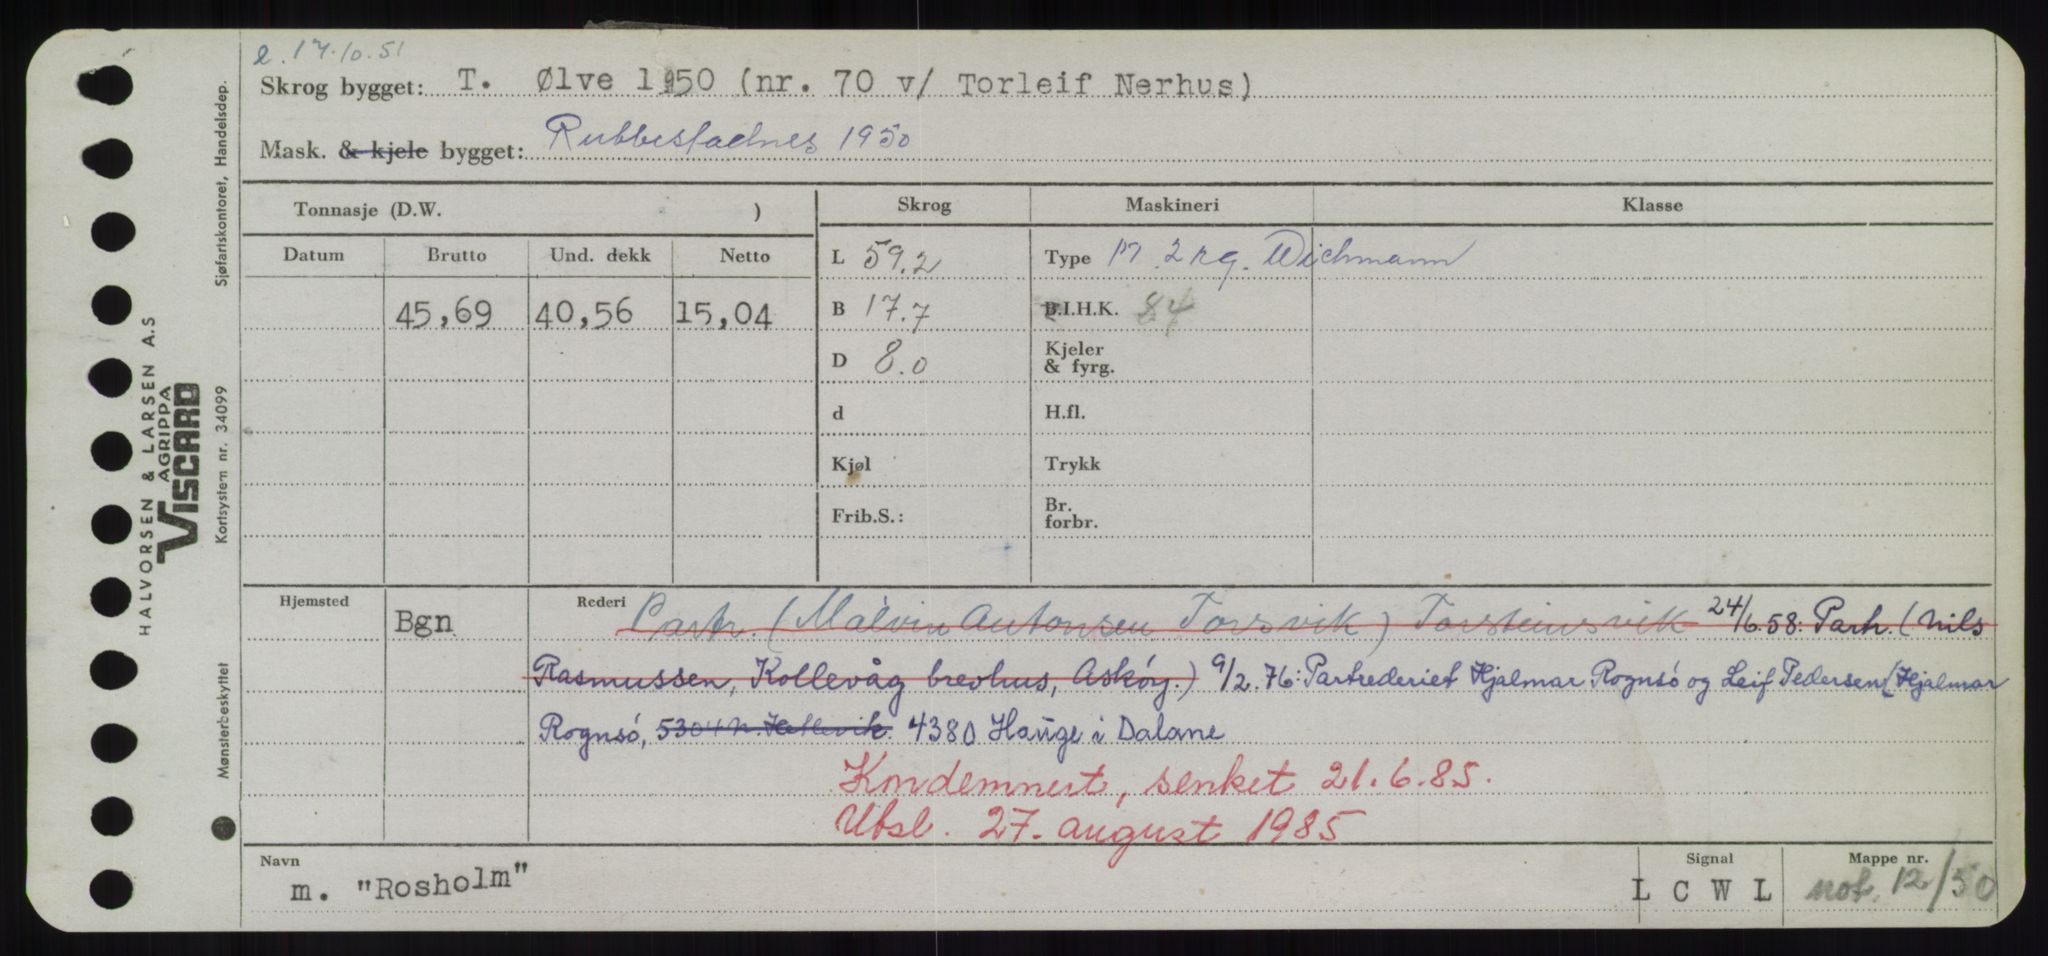 2. 17.10.51
Skrog bygget: T. Ølve 1950 (nr. 70 v/ Torleif Nerhus)
Mask. & kjele bygget: Rubbestadnes 1950
Tonnasje (D.W. ) Skrog Maskineri Klasse
Datum Brutto Und. dekk Netto L 59.2 Type m. 2 rg. Wichmann
45,69 40,56 15,04 B 17.7 B.I.H.K. 84
D 8.0 Kjeler
& fyrg.
d H.fl.
Kjøl Trykk
Frib.S.: Br.
forbr.
Hjemsted Bgn Rederi Partr. (Malvin Antonsen Torsvik) Torsteinsvik 24/6.58: Partr. (Nils
Rasmussen, Kollevåg brevhus, Askøy.) 9/2.76: Partrederiet Hjalmar Rognsö og Leif Pedersen (Hjalmar
Rognsö, 5304 N. Hetlevik. 4380 Hauge i Dalane
Kondemnert, senket 21.6.85.
Utsl. 27. august 1985
Navn Signal Mappe nr.
m. "Rosholm" L C W L not. 12/50
Sjøfartskontoret, Handelsdep.
Kortsystem nr. 34099
Mønsterbeskyttet
HALVORSEN & LARSEN A.S
AGRIPPA
VISCARD